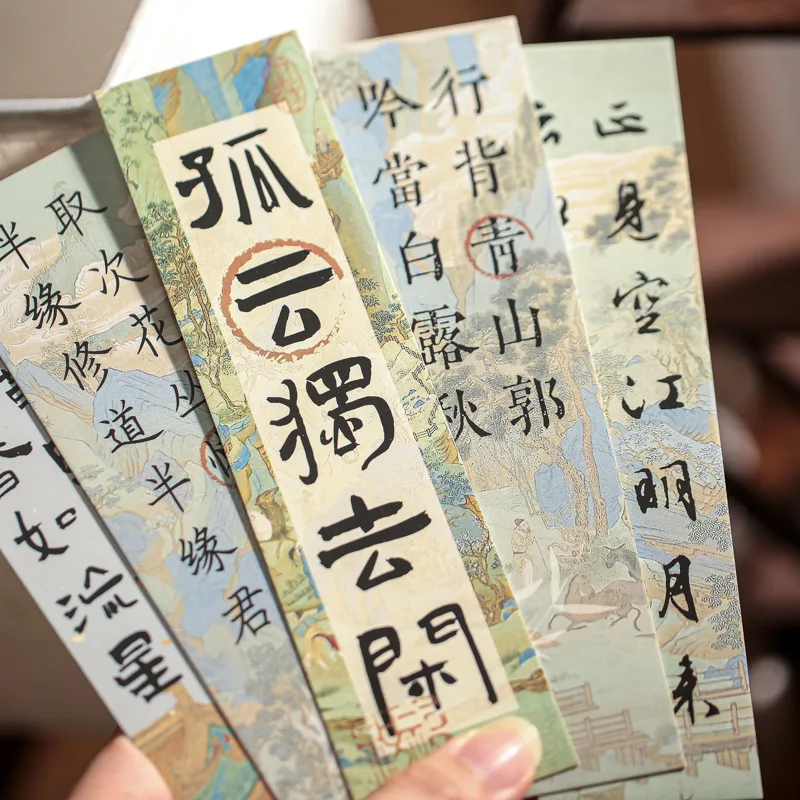 如流星
取次花丛
半缘修道半缘君
孤云獨去閑
行背青山郭
吟當白露秋
正見空江明月来